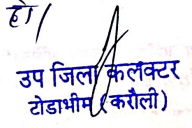 हो।
उप जिला कलक्टर
टोडाभीम (करौली)